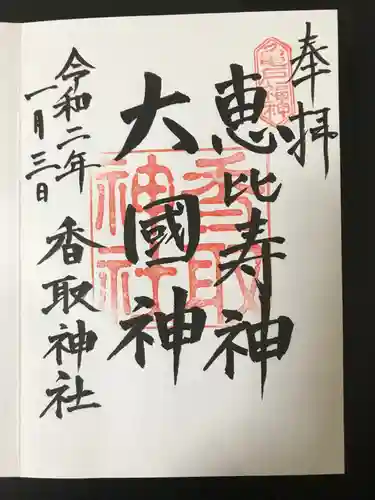 奉拝
恵比寿神
大國神
香取神社
令和二年
一月三日
香取神社